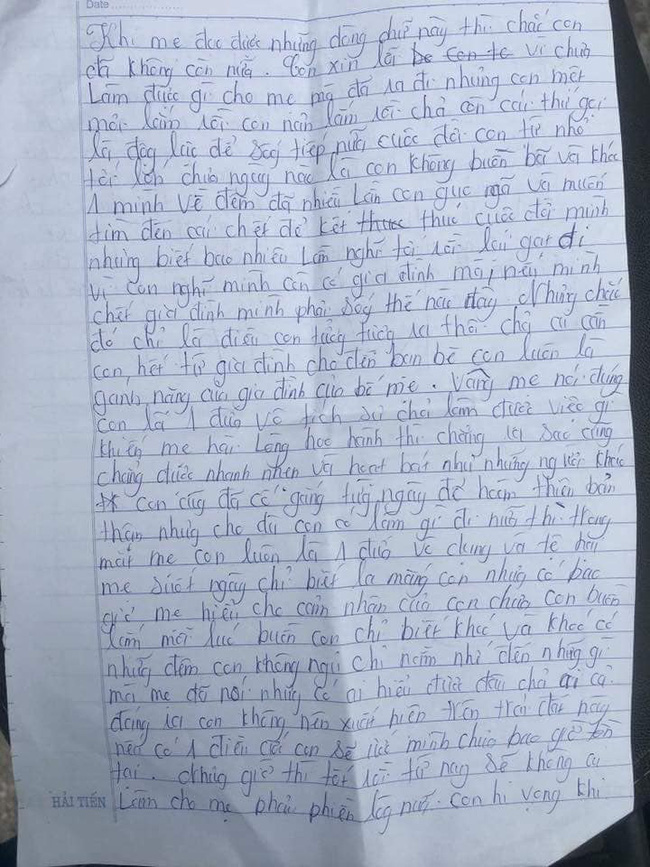 Date
Khi mẹ đọc được những dòng chữ này thì chắc con
đã không còn nữa. Con xin lỗi vì chưa
làm được gì cho mẹ mà đã ra đi nhưng con mệt
mỏi lắm rồi con nản lắm rồi chả còn cái thứ gọi
là động lực để sống tiếp nữa cuộc đời con từ nhỏ
tới lớn chưa ngày nào là con không buồn bã và khóc
1 mình về đêm đã nhiều lần con gục ngã và muốn
tìm đến cái chết để kết thúc cuộc đời mình
nhưng biết bao nhiêu lần nghĩ tới rồi lại gạt đi
vì con nghĩ mình còn có gia đình mà nếu mình
chết gia đình mình phải sống thế nào đây. Nhưng chắc
đó chỉ là điều con tưởng tượng ra thôi chả ai cần
con hết từ gia đình cho đến bạn bè con luôn là
gánh nặng của gia đình của bố mẹ. Vâng mẹ nói đúng
con là 1 đứa vô tích sự chả làm được việc gì
khiến mẹ hài lòng học hành thì chẳng ra sao cũng
chẳng được nhanh nhẹn và hoạt bát như những người khác
con cũng đã cố gắng từng ngày để hoàn thiện bản
thân nhưng cho dù con có làm gì đi nữa thì trong
mắt mẹ con luôn là 1 đứa vô dụng và tệ hại
mẹ suốt ngày chỉ biết la mắng con nhưng có bao
giờ mẹ hiểu cho cảm nhận của con chưa con buồn
lắm mỗi lúc buồn con chỉ biết khóc và khóc có
những đêm con không ngủ chỉ nằm nhớ đến những gì
mà mẹ đã nói nhưng có ai hiểu được đâu chả ai cả.
đáng ra con không nên xuất hiện trên trái đất này
nếu có 1 điều ước con sẽ ước mình chưa bao giờ tồn
tại. Nhưng giờ thì tốt rồi từ nay sẽ không ai
HẢI TIẾN làm cho mẹ phải phiền lòng nữa. Con hi vọng khi